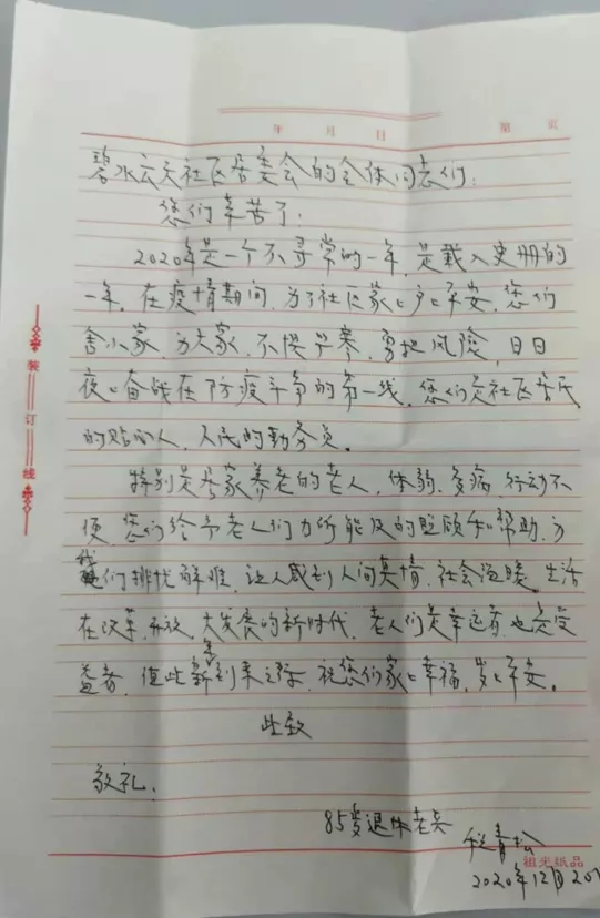 年 月 日 第 页
碧水云天社区居委会的全体同志们:
您们辛苦了:
2020年是一个不寻常的一年,是载入史册的
一年,在疫情期间,为了社区家々户々平安,您们
舍小家,为大家,不惧严寒,冒把风险,日日
夜々奋战在防疫斗争的第一线,您们是社区居民
的贴心人,人民的勤务员。
特别是居家养老的老人,体弱,多病,行动不
便,您们给予老人们力所能及的照顾和帮助,为
我们排忧解难,让人感到人间真情,社会温暖,生活
在改革,开放,大发展的新时代,老人们是幸运者,也是受
益者,值此新春到来之际,祝您们家々幸福,岁々平安。
此致
敬礼,
85岁退休老兵
青松
2020年12月20
装订线
祖光纸品